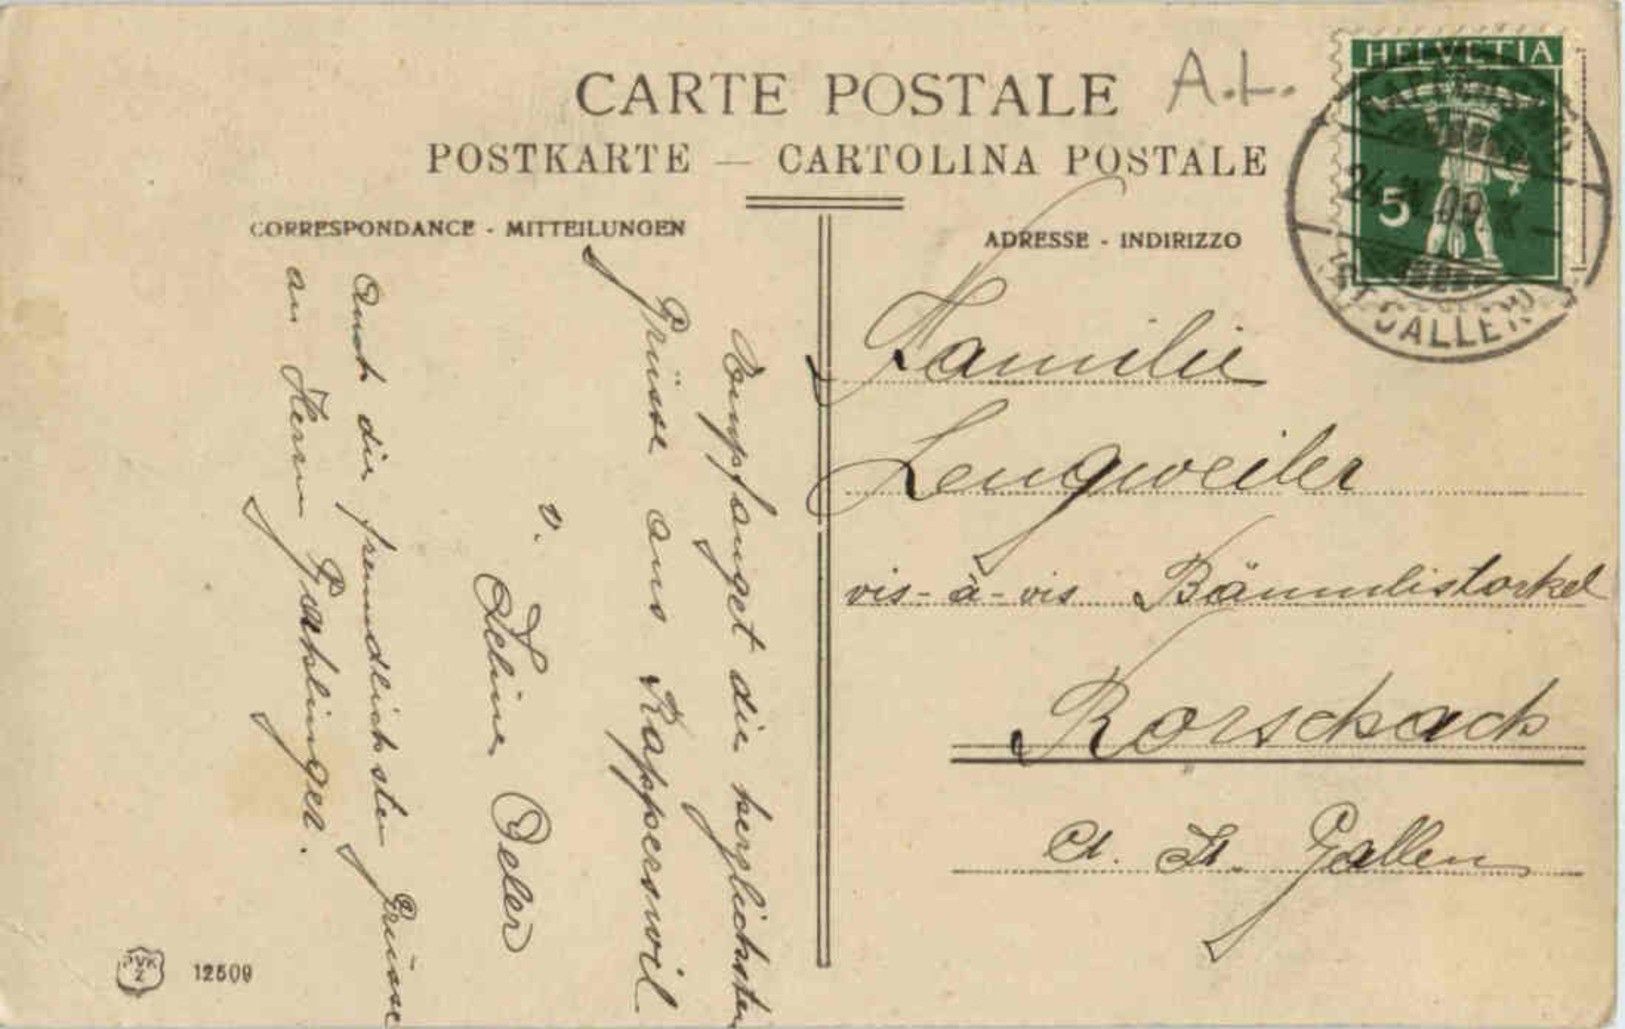 CARTE POSTALE A.L.
POSTKARTE — CARTOLINA POSTALE
CORRESPONDANCE - MITTEILUNGEN
ADRESSE - INDIRIZZO
HELVETIA
5
24. 09
ST. GALLEN
Empfanget die herzlichsten
Grüsse aus Rapperswil
v.
Seline Oeler
Auch die freundlichsten Grüsse
an Herrn Gachlinger.
Familie
Lengweiler
vis-à-vis Bäumlistorkel
Rorschach
Ct. St. Gallen
PVK
Z
12509